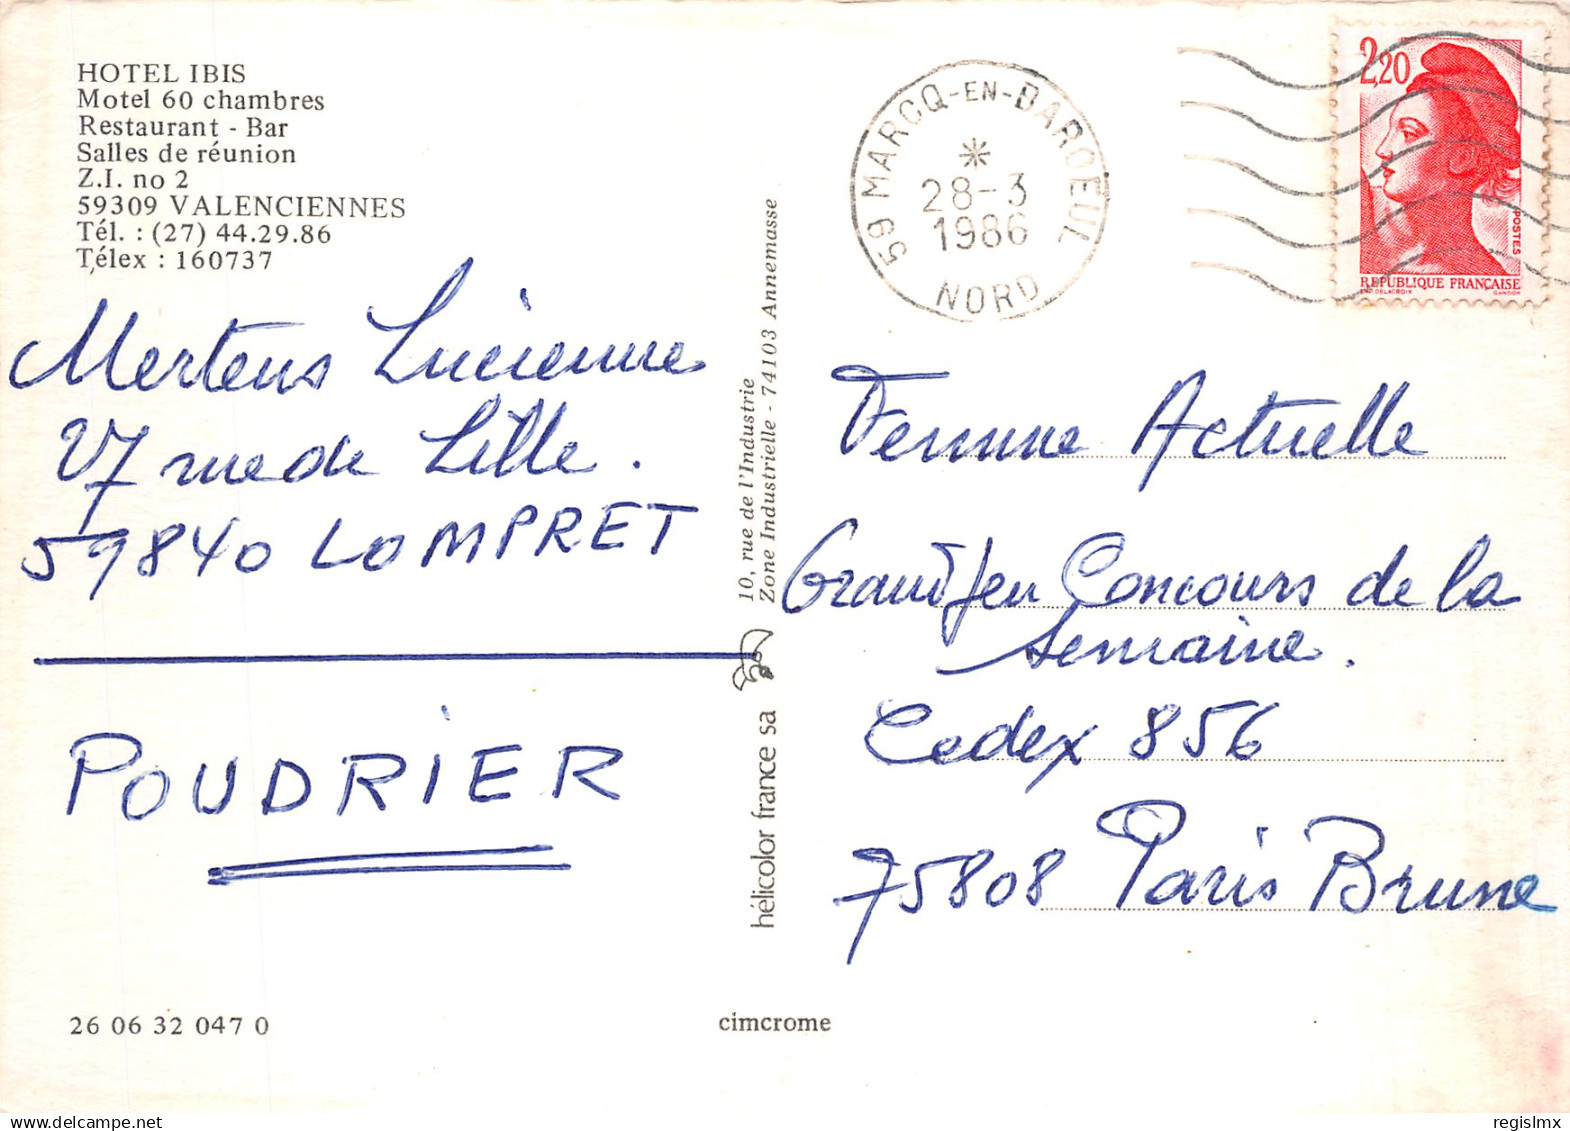 HOTEL IBIS
Motel 60 chambres
Restaurant - Bar
Salles de réunion
Z.I. no 2
59309 VALENCIENNES
Tél. : (27) 44.29.86
Télex : 160737
Mertens Lucienne
27 rue de Lille.
59840 LOMPRET
POUDRIER
26 06 32 047 0
10, rue de l'Industrie
Zone Industrielle - 74103 Annemasse
hélicolor france sa
cimcrome
59 MARCQ-EN-BAROEUL
*
28-3
1986
NORD
2,20
POSTES
REPUBLIQUE FRANÇAISE
D'AP. DELACROIX GANDON
Femme Actuelle
Grand Jeu Concours de la
semaine.
Cedex 856
75808 Paris Brune
regislmx